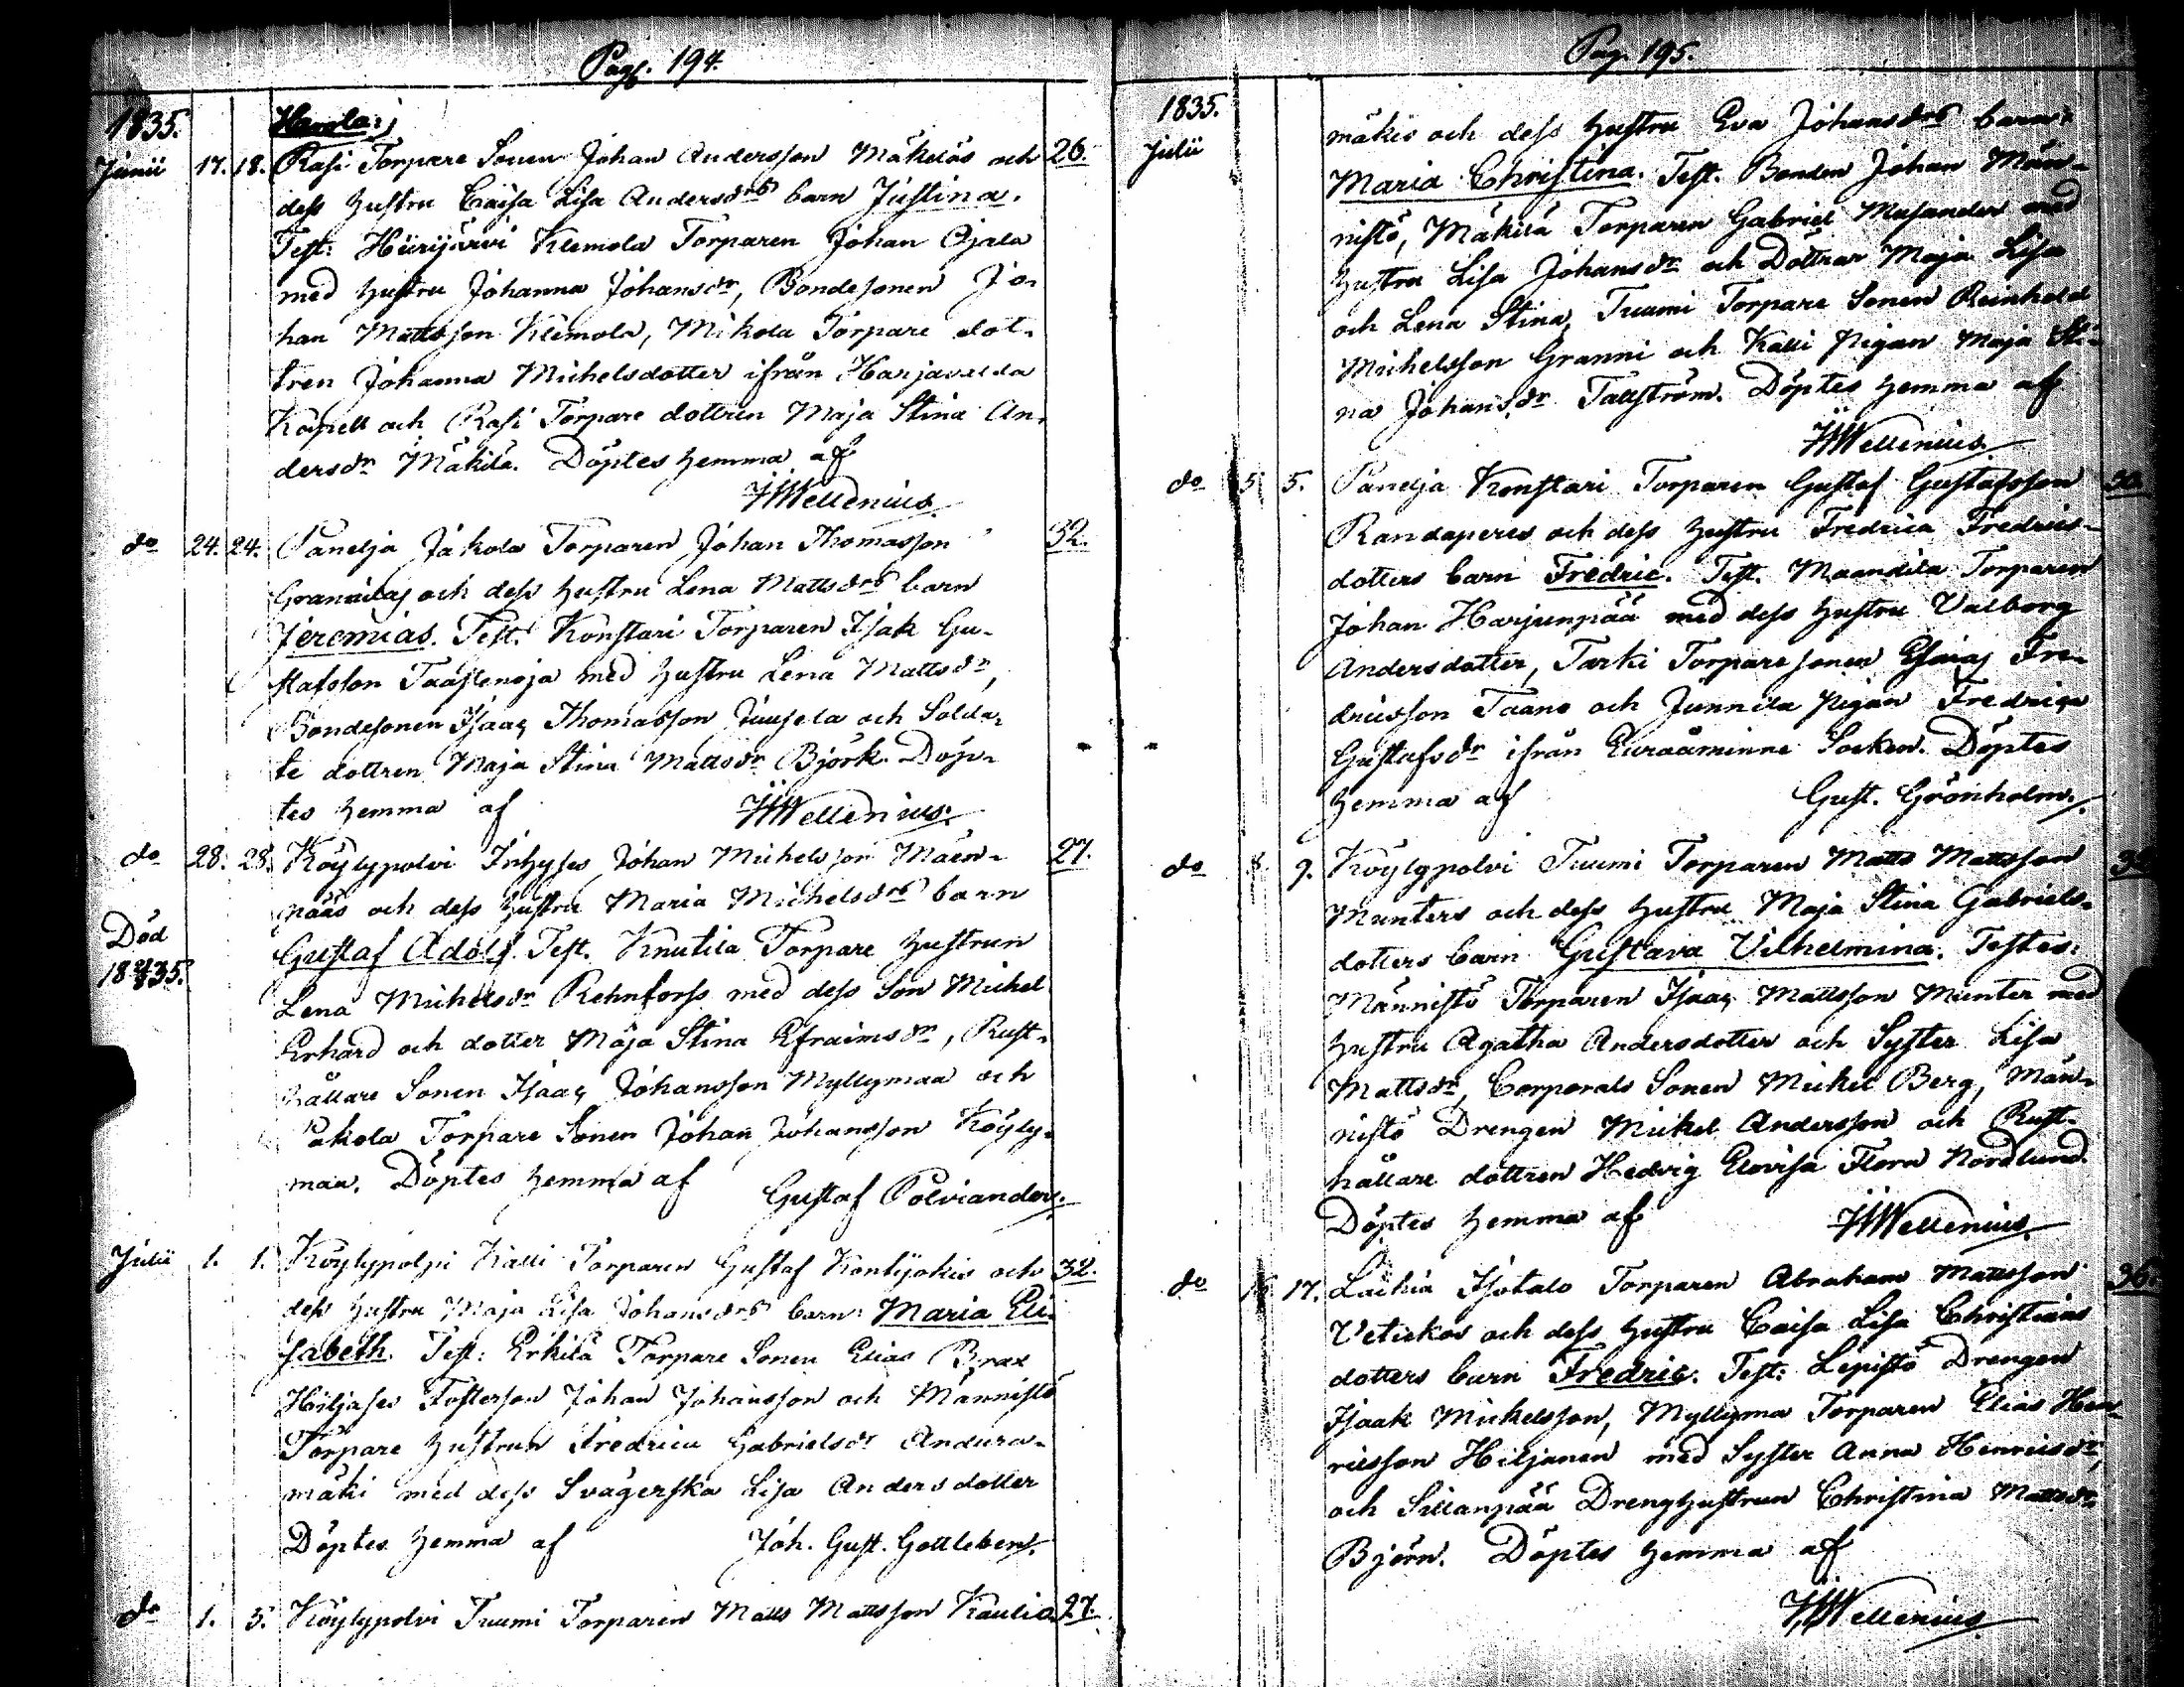 Pag. 194.
1835. Harola:
Junii 17. 18. Rasi Torpare Sonen Johan Andersson Mäkeläs och 26.
dess hustru Caisa Lisa Andersdrs barn Justina.
Test: Hiirijärvi Klemola Torparen Johan Ojala
med hustru Johanna Johansdr, Bondesonen Jo-
han Mattsson Klemola, Mikola Torpare dot-
tren Johanna Michelsdotter ifrån Harjavalda
Kapell och Rasi Torpare dottren Maja Stina An-
dersdr Mäkilä. Döptes hemma af
Wellenius.
do 24. 24. Panelja Jakola Torparen Johan Thomasson 32.
och dess hustru Lena Mattsdrs barn
Jeremias. Test. Konstari Torparen Isak Gu-
stafsson med hustru Lena Mattsdr,
Bondesonen Isaac Thomasson Juusela och Solda-
te dottren Maja Stina Mattsdr Björk. Döp-
tes hemma af Wellenius.
do 28. 28. Köylypolvi Inhyses Johan Michelsson Mäen- 27.
pääs och dess hustru Maria Michelsdrs barn
Död Gustaf Adolf. Test. Knutila Torpare hustrun
1835. Lena Michelsdr Rehnforss med dess Son Michel
Erhard och dotter Maja Stina Efraimsdr, Rust-
hållare Sonen Isaac Johansson Myllymaa och
Torpare Sonen Johan Johansson Köyly-
maa. Döptes hemma af Gustaf Polviander.
Julii 1. 1. Köylypolvi Kalli Torparen Gustaf Kontijokis och 32.
dess hustru Maja Lisa Johansdrs barn: Maria Eli-
sabeth. Test: Erkilä Torpare Sonen Elias Brax
Fosterson Johan Johansson och Männistö
Torpare hustrun Fredrica Gabrielsdr Andura-
mäki med dess Svägerska Lisa Andersdotter
Döptes hemma af Joh. Gust. Gottleben.
do 1. 5. Köylypolvi Tuumi Torparen Matts Mattsson Raulio- 27.
Pag. 195.
1835. mäkis och dess hustru Eva Johansdrs barn:
Julii Maria Christina. Test. Bonden Johan Män-
nistö, Mäkilä Torparen Gabriel Musander med
hustru Lisa Johansdr och Döttrar Maja Lisa
och Lena Stina, Tuumi Torpare Sonen Reinhold
Michelsson Granni och Kalli Pigan Maja Sti-
na Johansdr Tallström. Döptes hemma af
Wellenius.
do 5. 5. Panelja Konstari Torparen Gustaf Gustafsson
och dess hustru Fredrica Fredrics-
dotters barn Fredric. Test. Maankila Torparen
Johan Harjunpää med dess hustru Valborg
Andersdotter, Tarki Torpare sonen Esaias Fre-
dricsson Taano och Junnila Pigan Fredrica
Gustafsdr ifrån Euraåminne Socken. Döptes
hemma af Gust. Grönholm.
do 8. 9. Köylypolvi Tuumi Torparen Matts Mattsson
Munters och dess hustru Maja Stina Gabriels-
dotters barn Gustava Vilhelmina. Testes:
Männistö Torparen Isaac Mattsson Munter med
hustru Agatha Andersdotter och Syster Lisa
Mattsdr, Corporals Sonen Mickel Berg, Män-
nistö Drengen Mickel Andersson och Rust-
hållare dottren Hedvig Elovisa Flora Nordlund.
Döptes hemma af Wellenius.
do 16 17. Torparen Abraham Mattsson 36.
och dess hustru Caisa Lisa Christians
dotters barn Fredric. Test: Lepistö Drengen
Isaak Mickelsson, Myllyma Torparen Elias Hen-
ricsson Hiljanen med Syster Anna Henricsdr,
och Sillanpää Drenghustrun Christina Mattsdr
Björn. Döptes hemma af
Wellenius.